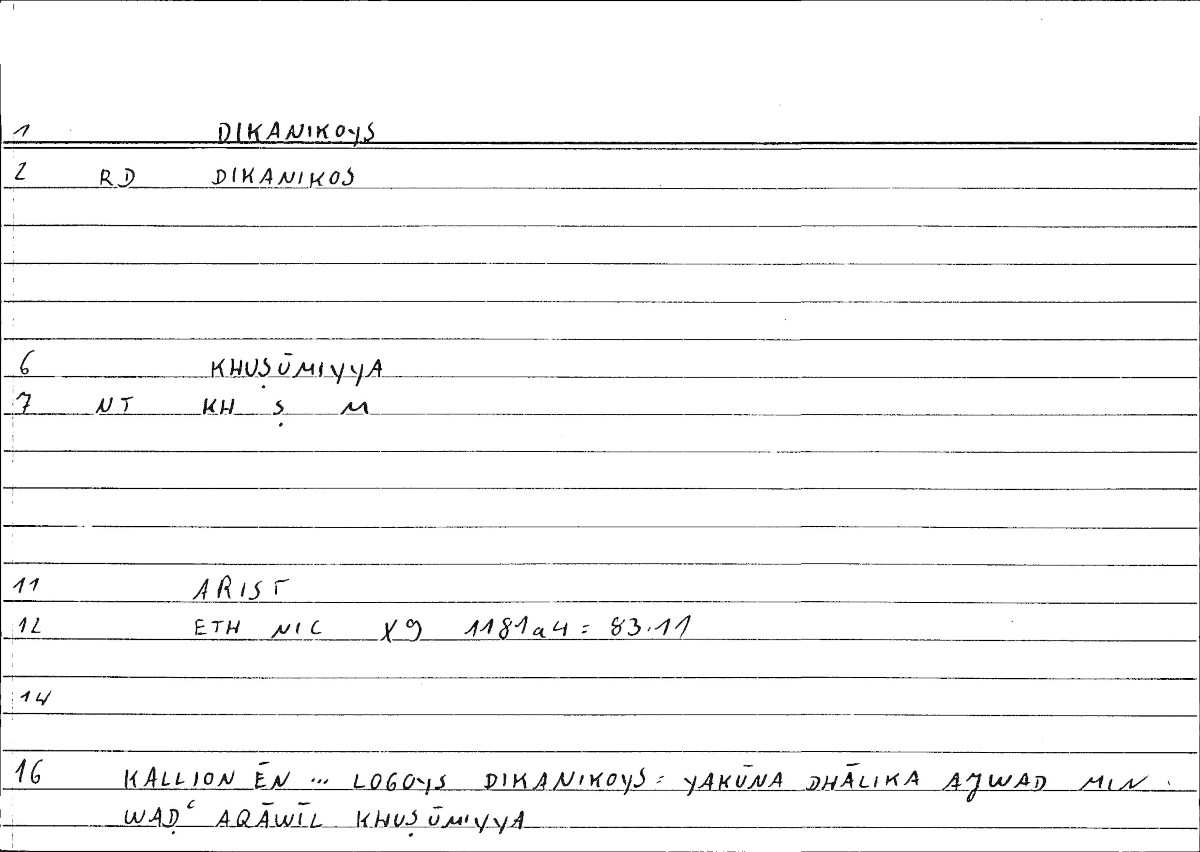 1 DIKANIKOYS
2 RD DIKANIKOS
6 KHUṢŪMIYYA
7 NT KH Ṣ M
11 ARIST
12 ETH NIC X9 1181a4 = 83.11
14
16 KALLION ĒN ... LOGOYS DIKANIKOYS = YAKŪNA DHĀLIKA AJWAD MIN
WAḌʿ AQĀWĪL KHUṢŪMIYYA